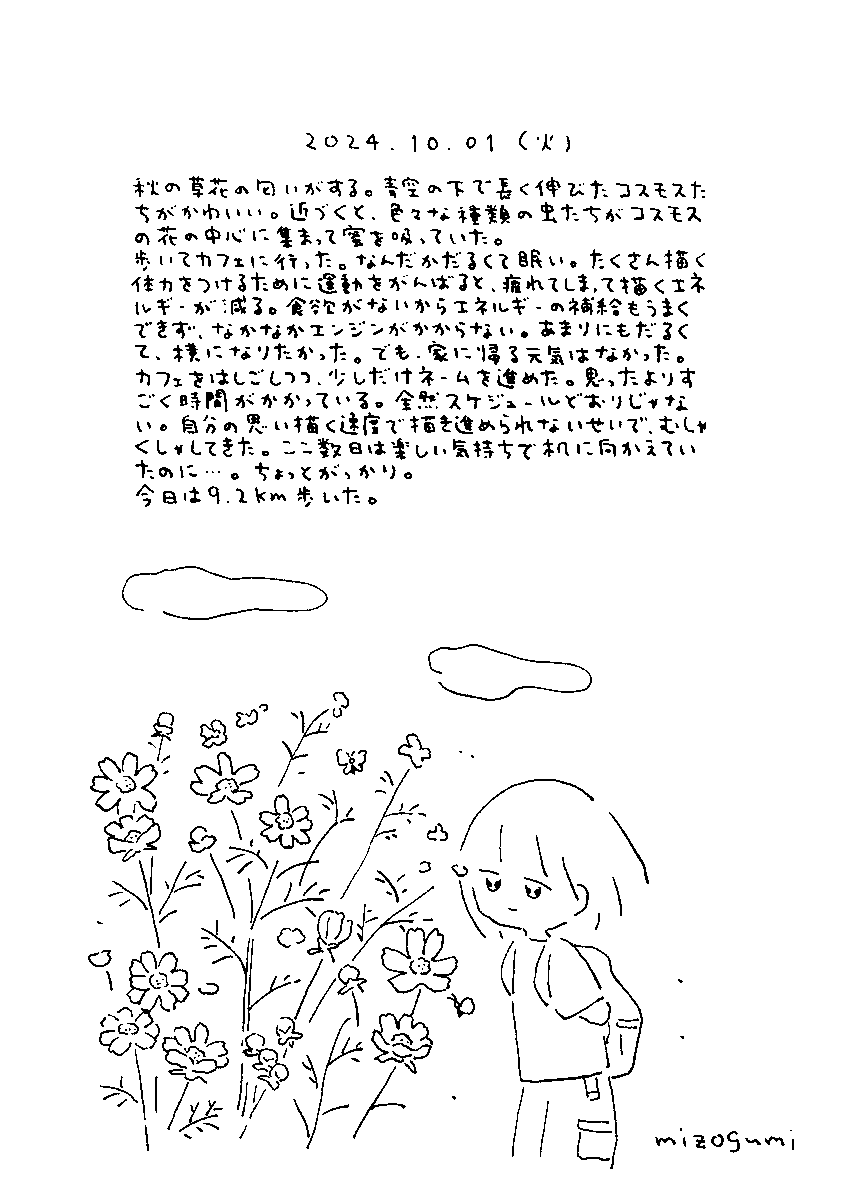 2024.10.01（火）
秋の草花の匂いがする。青空の下で長く伸びたコスモスた
ちがかわいい。近づくと、色々な種類の虫たちがコスモス
の花の中心に集まって蜜を吸っていた。
歩いてカフェに行った。なんだかだるくて眠い。たくさん描く
体力をつけるために運動をがんばると、疲れてしまって描くエネ
ルギーが減る。食欲がないからエネルギーの補給もうまく
できず、なかなかエンジンがかからない。あまりにもだるく
て、横になりたかった。でも、家に帰る元気はなかった。
カフェをはしごしつつ、少しだけネームを進めた。思ったよりす
ごく時間がかかっている。全然スケジュールどおりじゃな
い。自分の思い描く速度で描き進められないせいで、むしゃ
くしゃしてきた。ここ数日は楽しい気持ちで机に向かえてい
たのに…。ちょっとがっかり。
今日は9.2km歩いた。
mizogumi